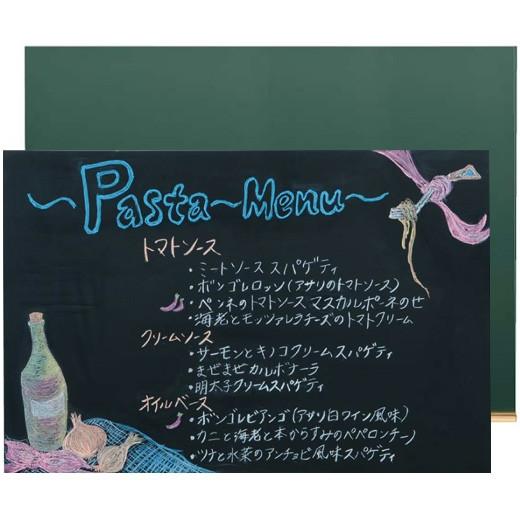 ～Pasta～Menu～
トマトソース
・ミートソース スパゲティ
・ボンゴレロッソ(アサリのトマトソース)
・ペンネのトマトソース マスカルポーネのせ
・海老とモッツァレラチーズのトマトクリーム
クリームソース
・サーモンとキノコクリームスパゲティ
・まぜまぜカルボナーラ
・明太子クリームスパゲティ
オイルベース
・ボンゴレビアンゴ(アサリ白ワイン風味)
・カニと海老と本からすみのペペロンチーノ
・ツナと水菜のアンチョビ風味スパゲティ